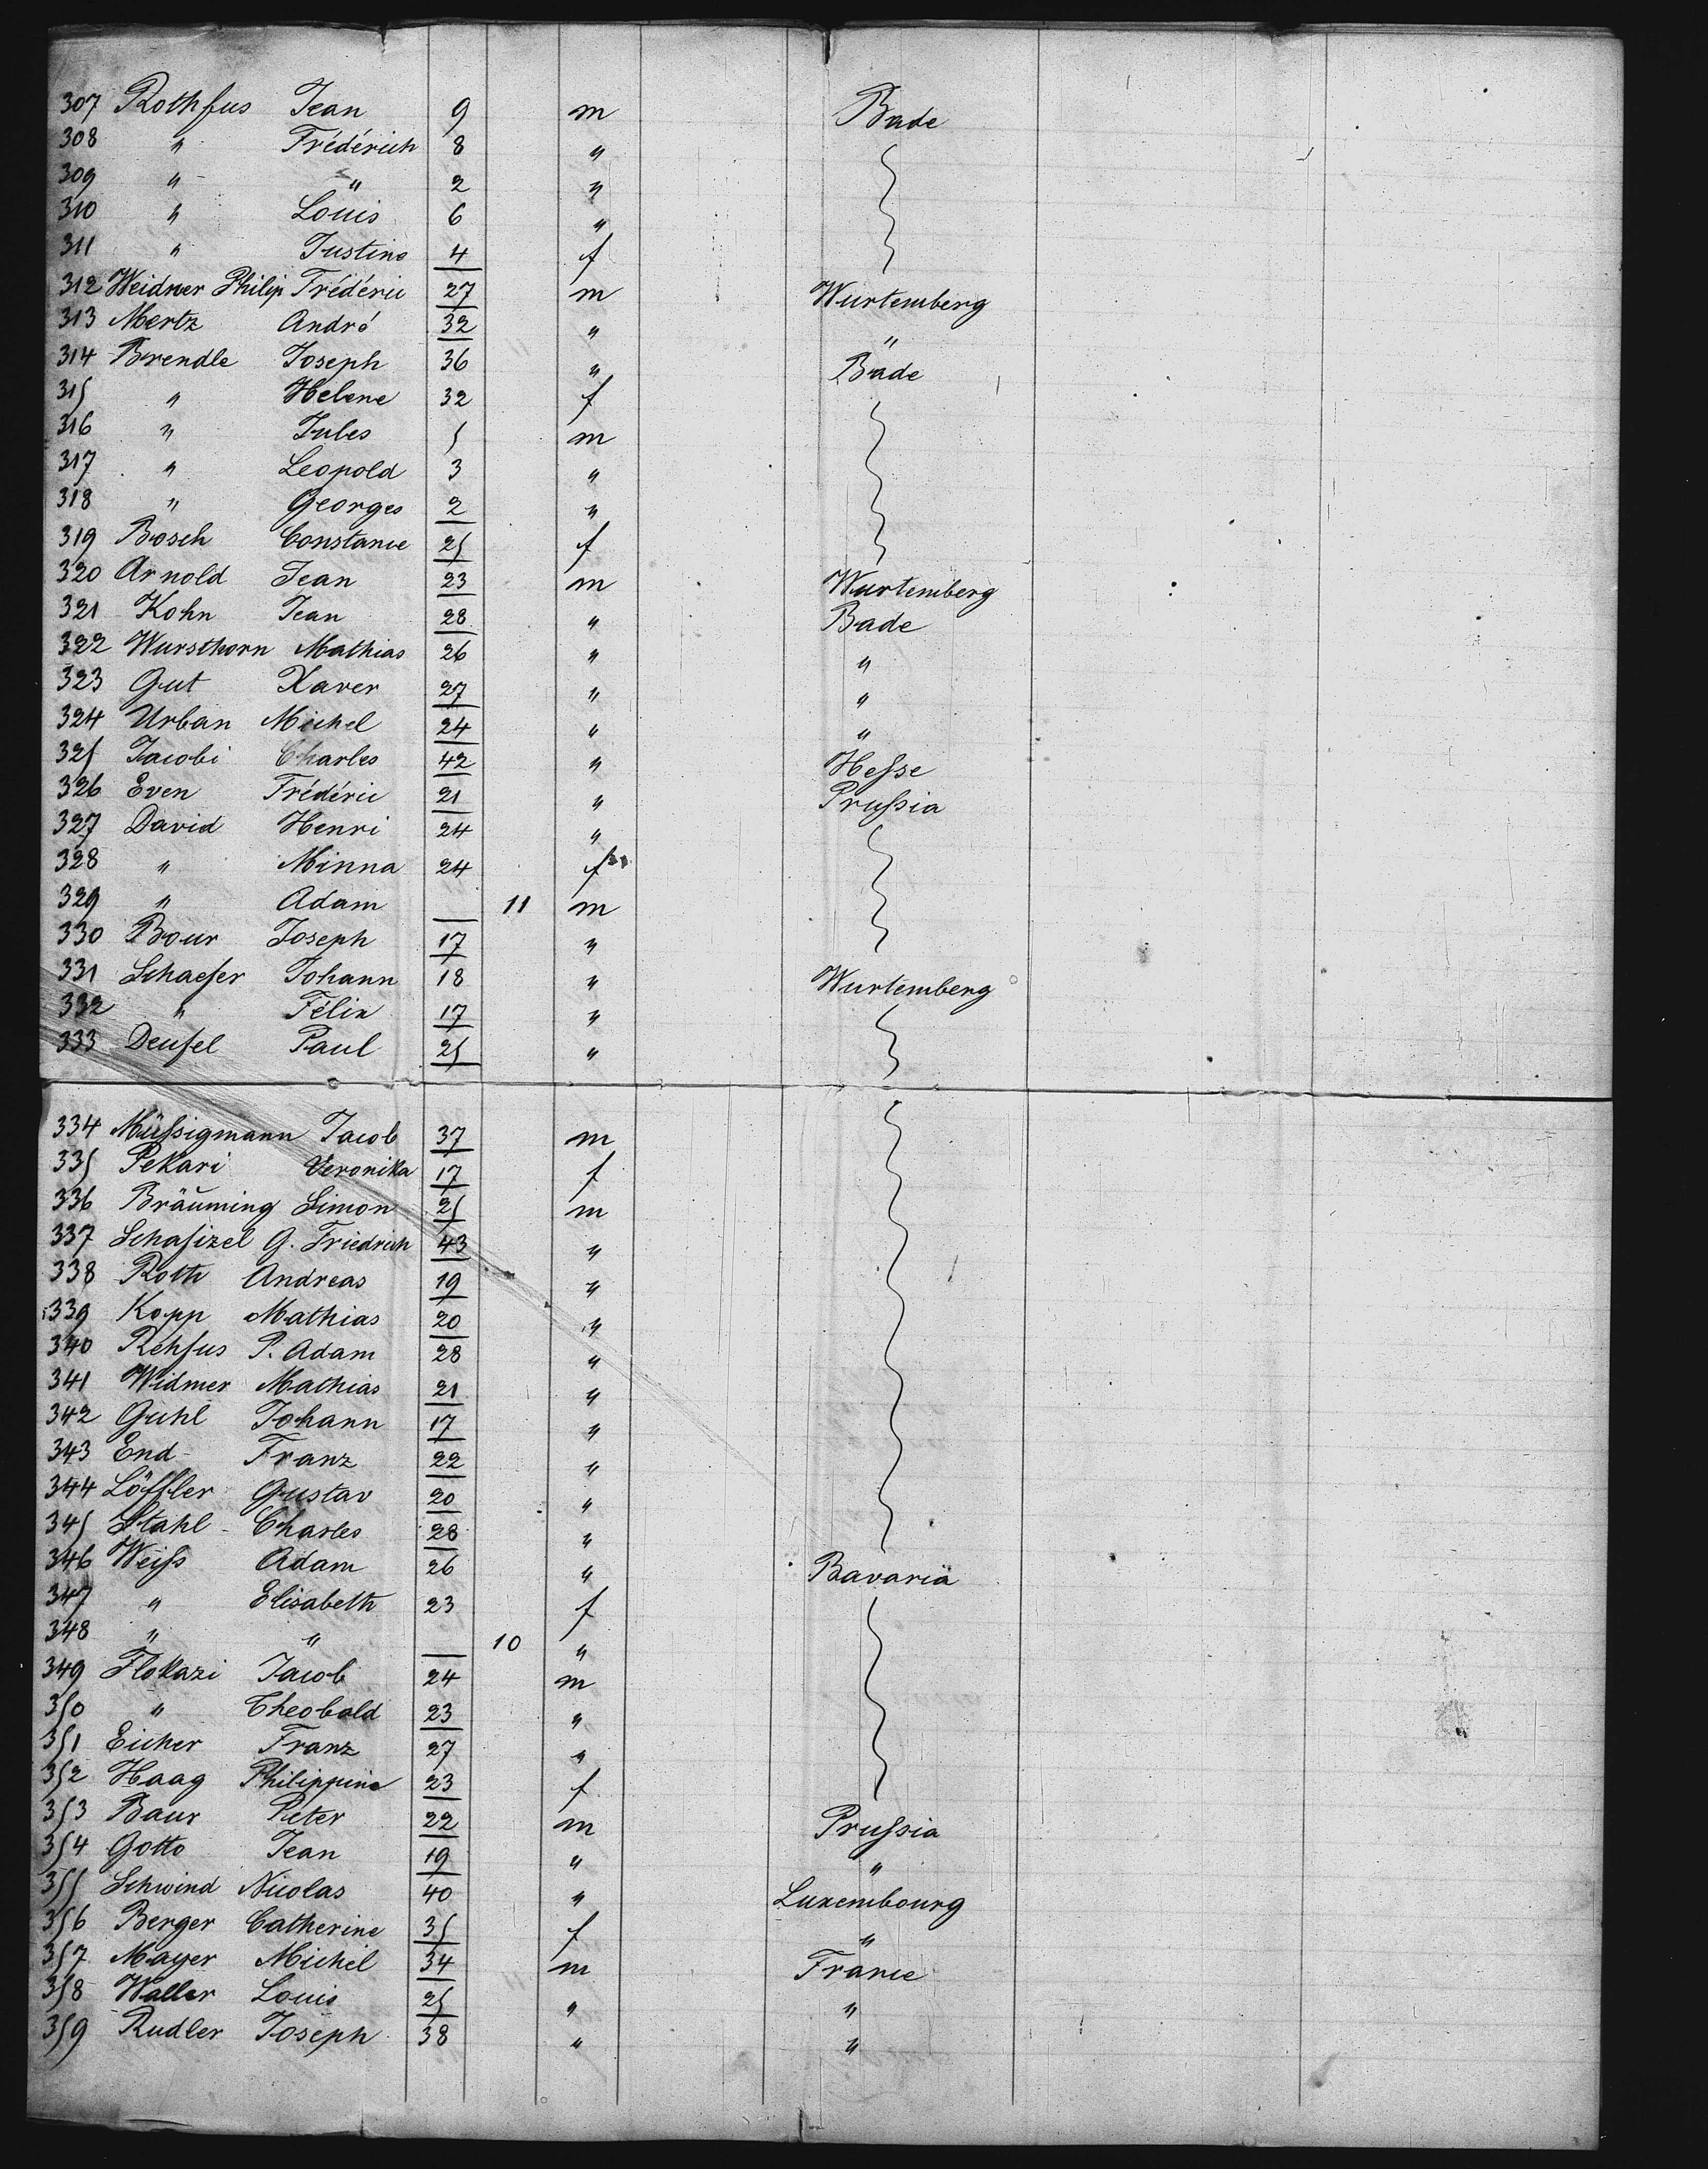 307 Rothfus Jean 9 m Bade
308 " Frédérich 8 "
309 " " 2 "
310 " Louis 6 "
311 " Justine 4 f
312 Weidner Philip Frédéric 27 m Wurtemberg
313 Mertz André 32 " "
314 Brendle Joseph 36 " Bade
315 " Helene 32 f
316 " Jules 5 m
317 " Leopold 3 "
318 " Georges 2 "
319 Bosch Constance 25 f
320 Arnold Jean 23 m Wurtemberg
321 Kohn Jean 28 " Bade
322 Wursthorn Mathias 26 " "
323 Gut Xaver 27 " "
324 Urban Michel 24 " "
325 Jacobi Charles 42 " Hesse
326 Even Frédéric 21 " Prussia
327 David Henri 24 "
328 " Minna 24 f
329 " Adam 11 m
330 Bour Joseph 17 "
331 Schaefer Johann 18 " Wurtemberg
332 " Félix 17 "
333 Deufel Paul 25 "
334 Müssigmann Jacob 37 m
335 Pekari Veronika 17 f
336 Bräuming Simon 25 m
337 Schafizel G. Friedrich 43 "
338 Roth Andreas 19 "
339 Kopp Mathias 20 "
340 Rehfus P. Adam 28 "
341 Widmer Mathias 21 "
342 Guhl Johann 17 "
343 End Franz 22 "
344 Löffler Gustav 20 "
345 Stahl Charles 28 "
346 Weiss Adam 26 " Bavaria
347 " Elisabeth 23 f
348 " " 10 "
349 Flokazi Jacob 24 m
350 " Theobald 23 "
351 Eicher Franz 27 "
352 Haag Philippine 23 f
353 Baur Peter 22 m Prussia
354 Gotto Jean 19 " "
355 Schwind Nicolas 40 " Luxembourg
356 Berger Catherine 35 f "
357 Mayer Michel 34 m France
358 Waller Louis 25 " "
359 Rudler Joseph 38 " "